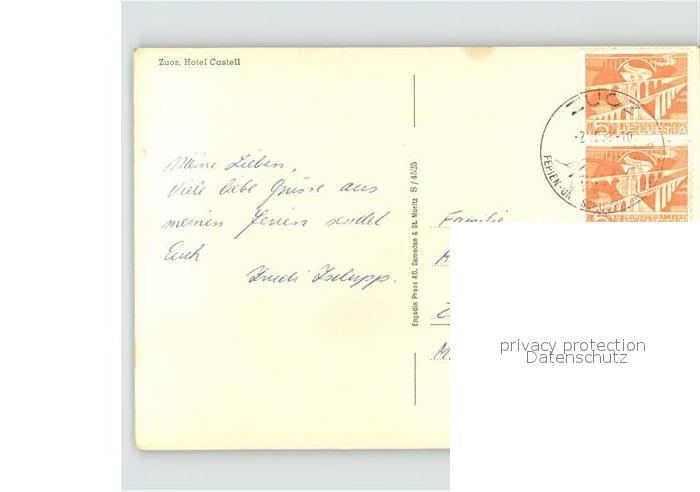 Zuoz, Hotel Castell
Meine Lieben,
Viele liebe Grüsse aus
meinen Ferien sendet
Euch
Engadin Press AG, Samedan & St. Moritz S / 4525
Familie
ZUOZ
FERIEN-
5 HELVETIA
privacy protection
Datenschutz